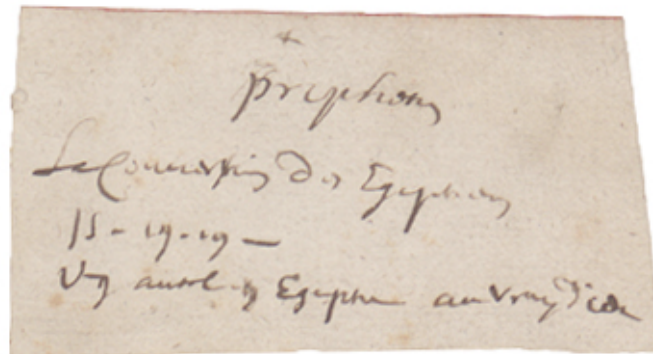 Propheties
La Conversion des Egyptiens
Is - 19 - 19 -
Un autel en Egypte au vray Dieu